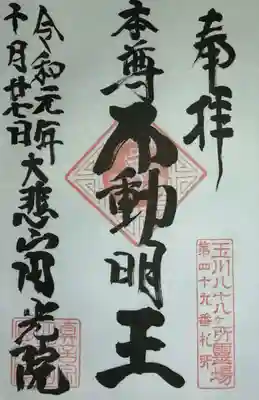 奉拝
玉川八十八ヶ所霊場
第四十九番札所
本尊不動明王
令和元年
十一月廿七日大悲山円光院